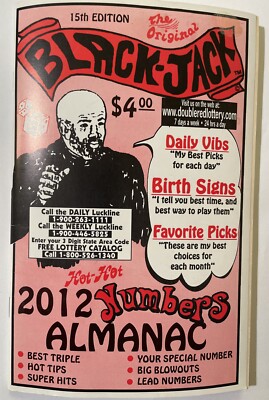 15th EDITION
the
Original
BLACK-JACK
$4.00
Visit us on the web at:
www.doubleredlottery.com
7 days a week • 24 hrs a day
Daily Vibs
"My Best Picks
for each day"
Birth Signs
"I tell you best time, and
best way to play them"
Favorite Picks
"These are my best
choices for
each month"
Call the DAILY Luckline
1-900-263-1111
Call the WEEKLY Luckline
1-900-446-5825
Enter your 3 Digit State Area Code
FREE LOTTERY CATALOG
Call 1-800-526-1340
Hot-Hot
2012 Numbers
ALMANAC
• BEST TRIPLE
• HOT TIPS
• SUPER HITS
• YOUR SPECIAL NUMBER
• BIG BLOWOUTS
• LEAD NUMBERS